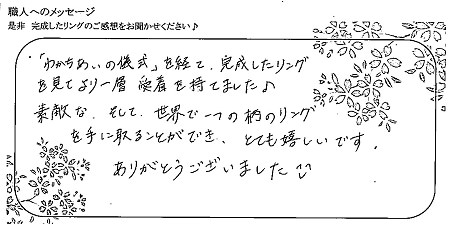 職人へのメッセージ
是非 完成したリングのご感想をお聞かせください♪
「わかちあいの儀式」を経て、完成したリング
を見てより一層 愛着を持てました♪
素敵な、そして、世界で一つの柄のリング
を手に取ることができ、とても嬉しいです。
ありがとうございました